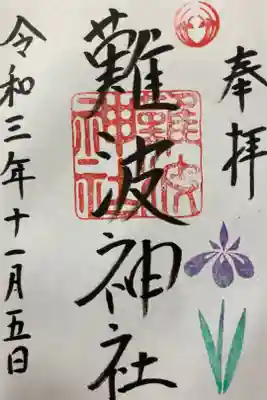 奉拝
難波神社
難波
神社
令和三年十一月五日